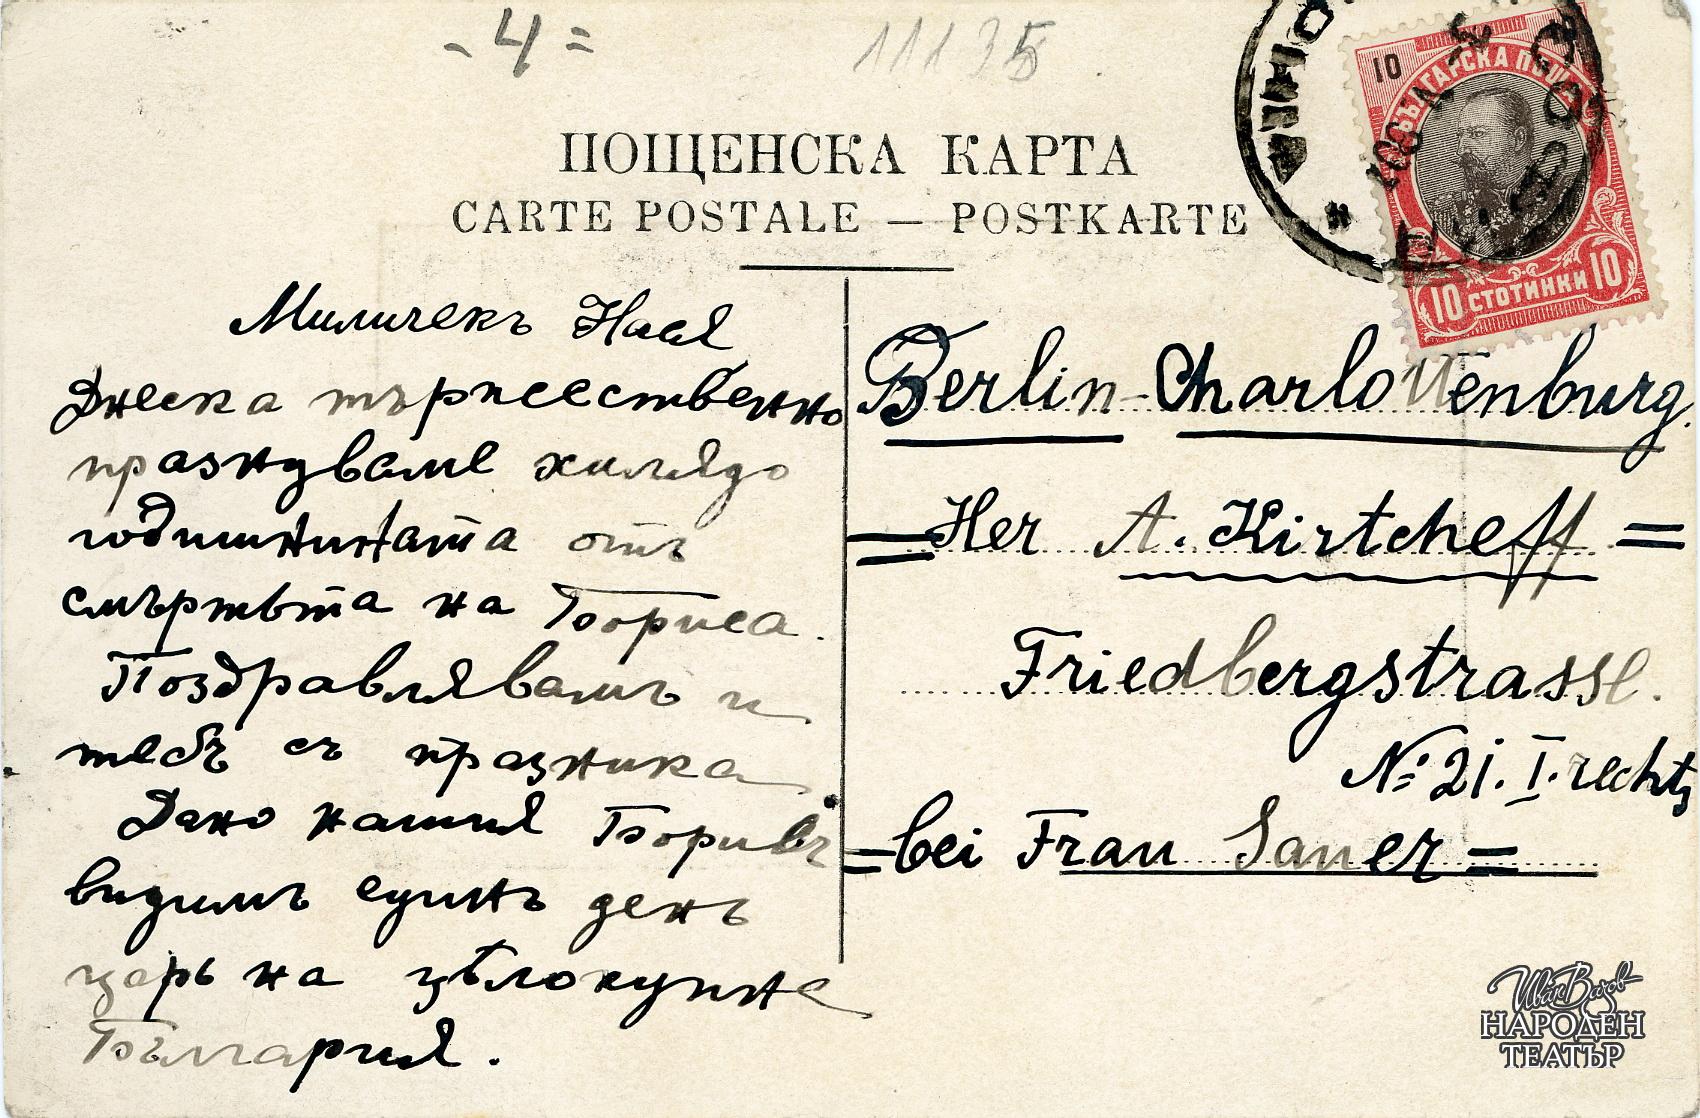 - 4 =
11135
ПОЩЕНСКА КАРТА
CARTE POSTALE — POSTKARTE
10
БЪЛГАРСКА ПОЩА
10 СТОТИНКИ 10
Миличекъ Нася
Днеска тържественно
празнуваме хилядо
годишнината отъ
смъртьта на Бориса.
Поздравлявамъ и
тебъ съ празника
Дано нашия Борисъ
видимъ единъ день
царь на цѣлокупне
България.
Berlin-Charlottenburg.
= Her A. Kirtcheff =
Friedbergstrasse.
№ 21. I. rechts
= bei Frau Sauer =
Иван Вазов
НАРОДЕН
ТЕАТЪР